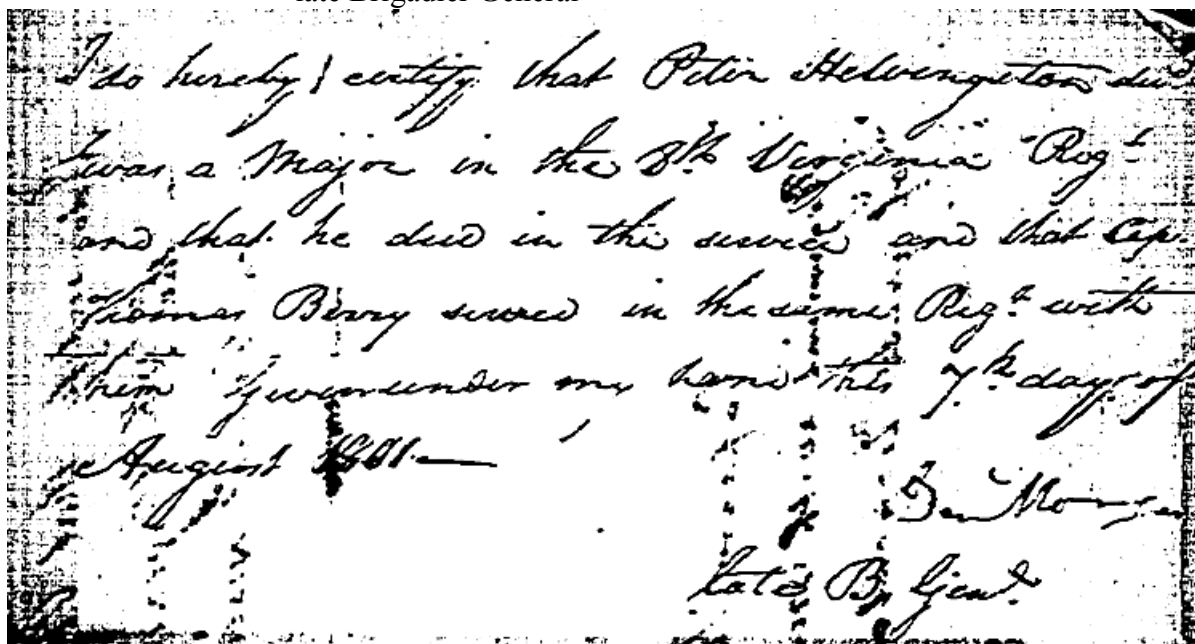 late Brigadier General
I do hereby certify that Peter Helvengston decd
was a Major in the 8th Virginia Regt
and that he died in the service and that Cap.
Thomas Berry served in the same Regt with
them Given under my hand this 7th day of
August 1801.—
Dan Morgan
late B. Genl.